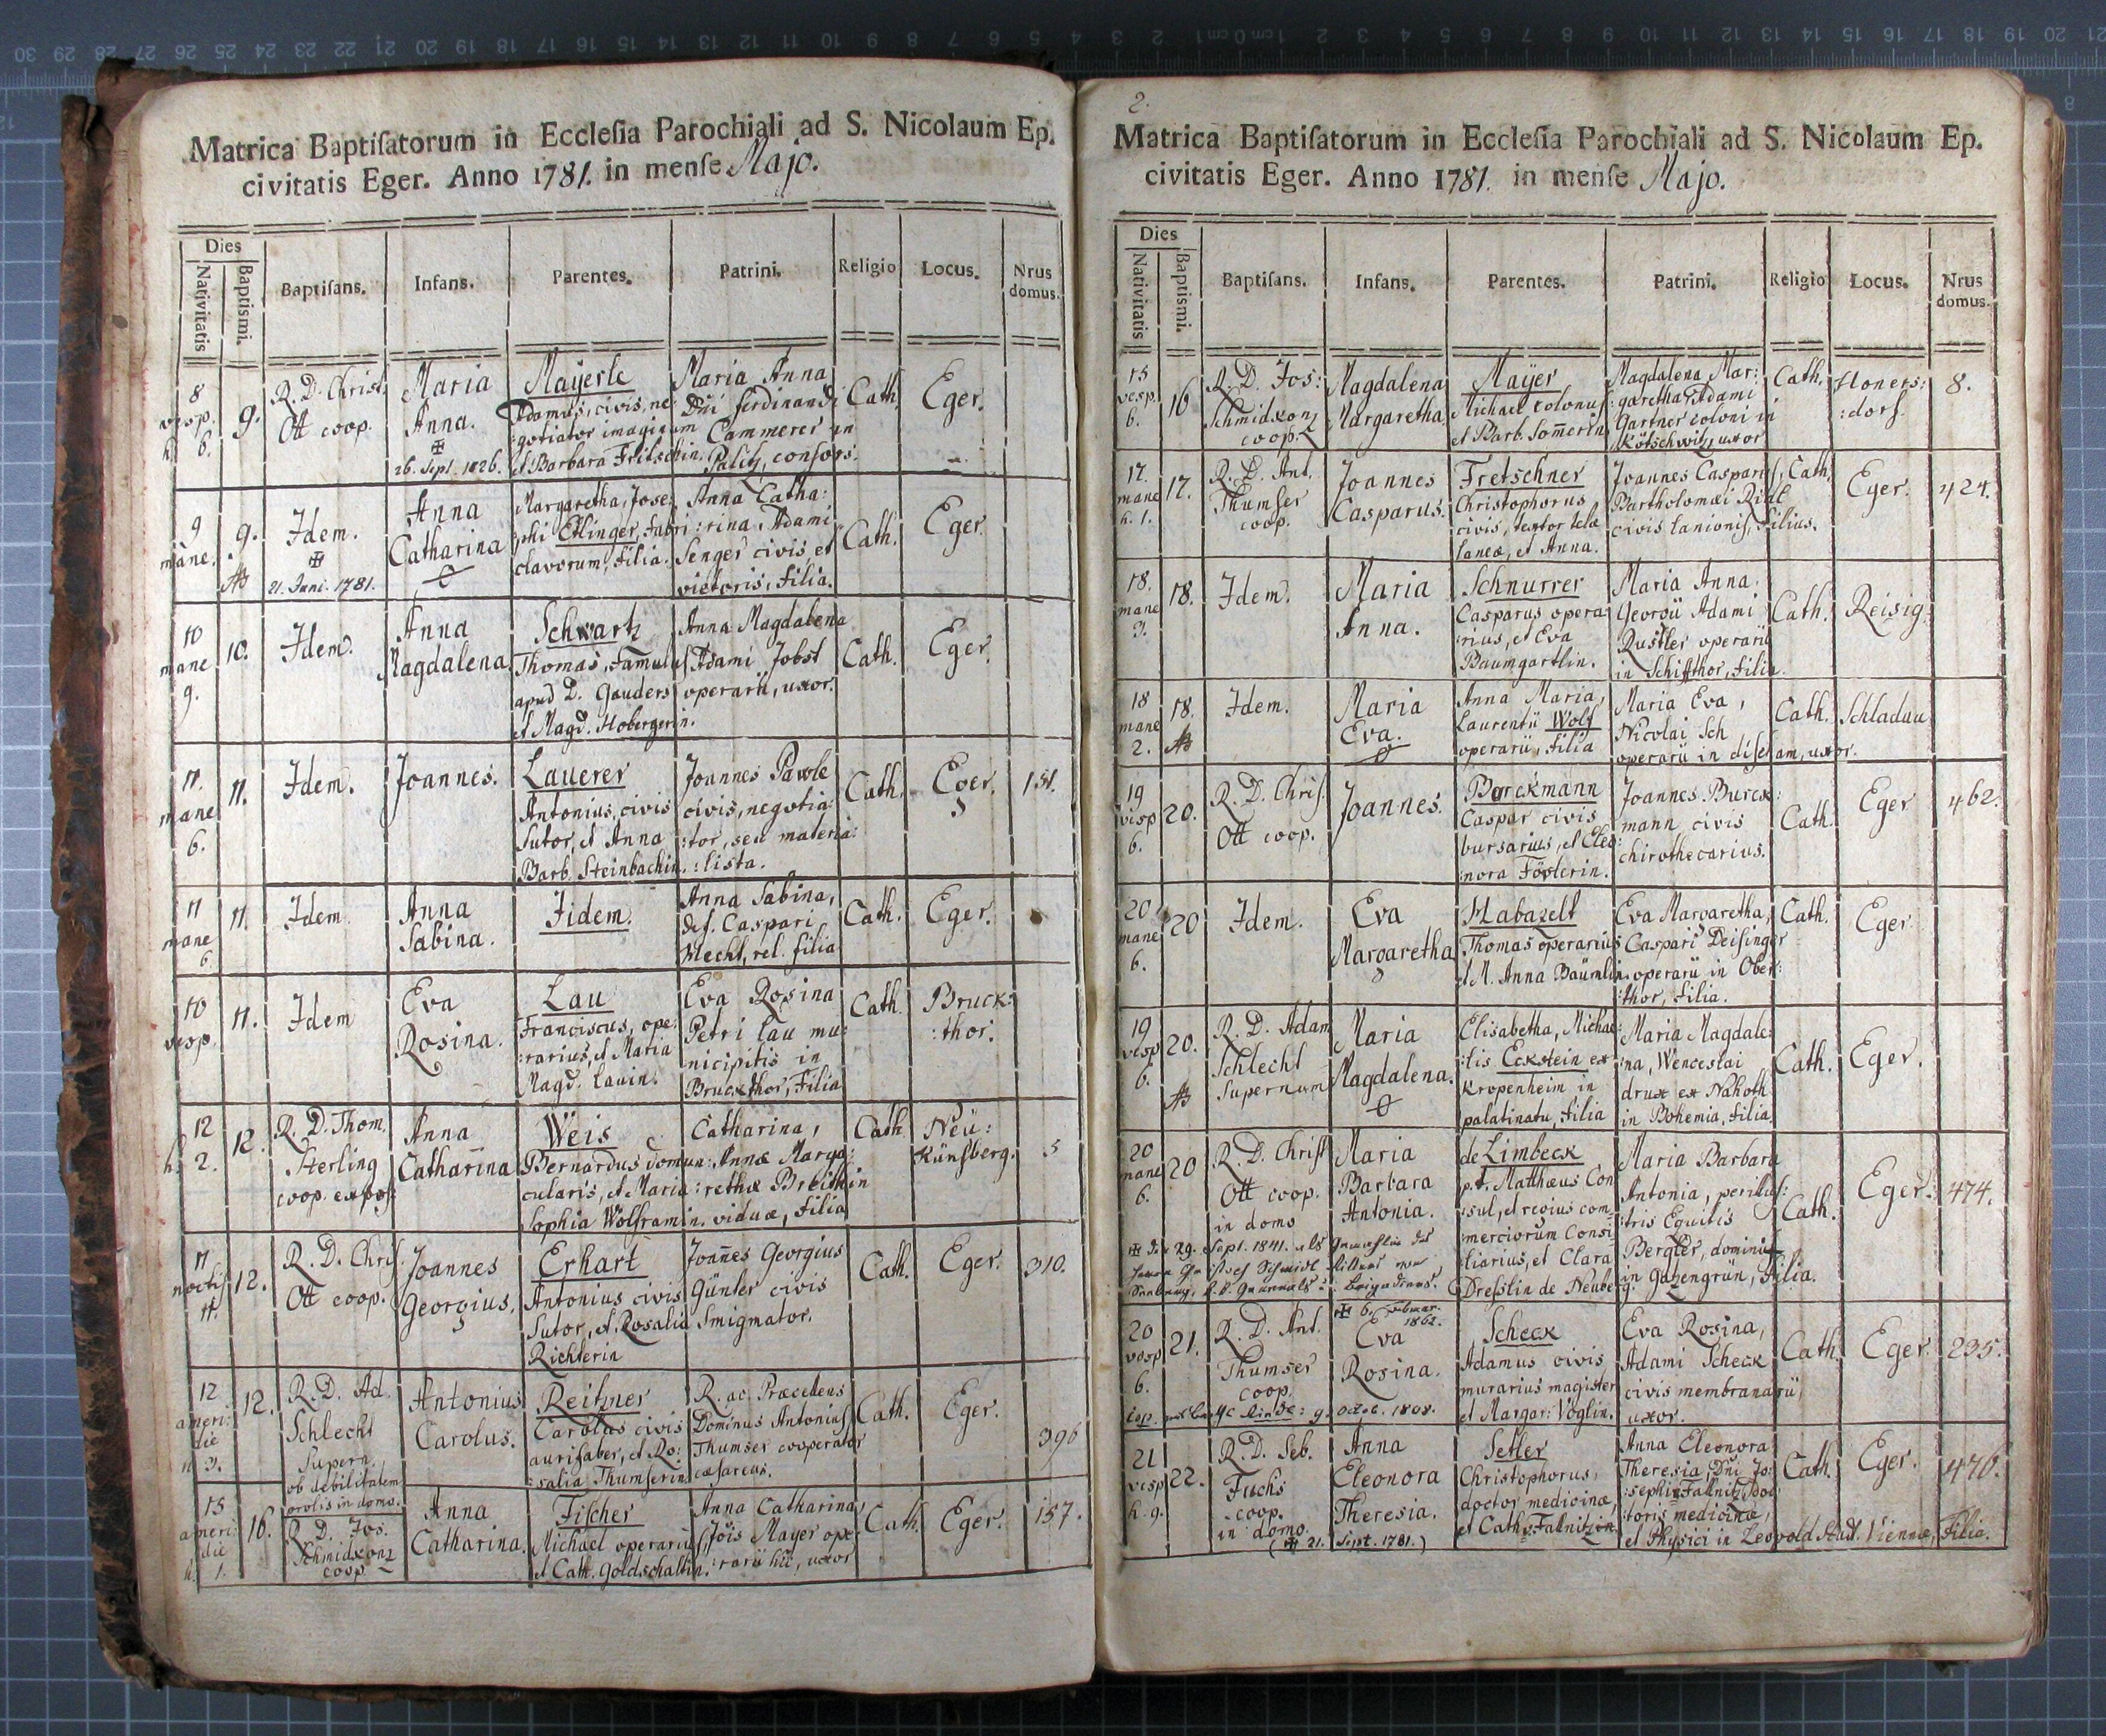 Matrica Baptiſatorum in Eccleſia Parochiali ad S. Nicolaum Ep.
civitatis Eger. Anno 1781. in menſe Majo.
Dies
Nativitatis
Baptismi.
Baptiſans.
Infans.
Parentes.
Patrini.
Religio
Locus.
Nrus
domus.
8
vesp.
h. 6.
9.
R. D. Christ.
Ott coop.
Maria
Anna.
26. Sept. 1826.
Mayerle
Adamus, civis, ne:
:gotiator imaginum
et Barbara Fritschin.
Maria Anna
Dni Ferdinandi
Cammerer in
Palitz, consors.
Cath.
Eger.
9
mane.
9.
Idem.
21. Juni. 1781.
Anna
Catharina
Margaretha, Jose:
:phi Etlinger, fabri
clavorum, filia.
Anna Catha:
:rina, Adami
Senger civis et
vietoris, filia.
Cath.
Eger.
10
mane
9.
10.
Idem.
Anna
Magdalena
Schwartz
Thomas, famulus
apud D. Gauders
et Magd. Hobergerin.
Anna Magdalena
Adami Jobst
operarii, uxor.
Cath.
Eger.
11.
mane
6.
11.
Idem.
Joannes.
Lauerer
Antonius, civis
Sutor, et Anna
Barb. Steinbachin.
Joannes Pawle
civis, negotia:
:tor, seu materia:
:lista.
Cath.
Eger.
151.
11
mane
6
11.
Idem.
Anna
Sabina.
Iidem.
Anna Sabina,
def. Caspari
Hecht, rel. filia
Cath.
Eger.
10
vesp.
11.
Idem
Eva
Rosina.
Lau
Franciscus, ope:
:rarius, et Maria
Magd. Lauin.
Eva Rosina
Petri Lau mu:
nicipitis in
Bruckthor, Filia
Cath.
Bruck:
:thor.
12
h. 2.
12.
R. D. Thom.
Sterling
coop. expos.
Anna
Catharina
Weis
Bernardus domun:
cularis, et Maria
Sophia Wolframin.
Catharina,
Annæ Marga:
:rethæ Breithin
viduæ, filia
Cath
Neü:
Künsberg.
5
11
noctis
11.
12.
R. D. Chris.
Ott coop.
Joannes
Georgius.
Erhart
Antonius civis
Sutor, et Rosalia
Richterin
Joañes Georgius
Günter civis
Smigmator.
Cath.
Eger.
310.
12
ameri:
die
h 3.
12.
R. D. Ad.
Schlecht
Supern.
ob debilitatem
prolis in domo.
Antonius
Carolus.
Reitzner
Carolus civis
aurifaber, et Ro:
:salia Thumserin
R. ac. Præcellens
Dominus Antonius
Thumser cooperator
cæsareus.
Cath.
Eger.
396
15
ameri:
die
h. 1.
16.
R. D. Jos.
Schmidkonz
coop
Anna
Catharina.
Fischer
Michael operarius,
et Cath. Goldschaltin.
Anna Catharina,
Jois Mayer ope:
:rarii hic, uxor
Cath.
Eger.
157.
2.
Matrica Baptiſatorum in Eccleſia Parochiali ad S. Nicolaum Ep.
civitatis Eger. Anno 1781. in menſe Majo.
Dies
Nativitatis
Baptismi.
Baptiſans.
Infans.
Parentes.
Patrini.
Religio
Locus.
Nrus
domus.
15
vesp.
6.
16
R. D. Jos:
Schmidkonz
coop.
Magdalena
Margaretha.
Mayer
Michael colonus
et Barb. Som̄erin
Magdalena Mar:
:garetha, Adami
Gartner coloni in
Kötschwitz, uxor
Cath.
Honers:
:dorf.
8.
17.
mane
h. 1.
17.
R. D. Ant.
Thumser
coop.
Joannes
Casparus.
Fretschner
Christophorus
civis, textor telæ
laneæ, et Anna.
Joannes Casparus,
Bartholomæi
civis lanionis, filius.
Cath.
Eger.
424.
18.
mane
3.
18.
Idem.
Maria
Anna.
Schnurrer
Casparus opera:
:rius, et Eva
Baumgartlin.
Maria Anna.
Georgii Adami
Rustler operarii
in Schiffthor, filia.
Cath.
Reisig.
18
mane
2.
18.
Idem.
Maria
Eva.
Anna Maria,
Laurentii Wolf
operarii, filia
Maria Eva,
Nicolai Sch
operarii in
uxor.
Cath.
Schladau
19
vesp
6.
20.
R. D. Chris.
Ott coop.
Joannes.
Burckmann
Caspar civis
bursarius, et Eleo:
:nora Föslerin.
Joannes Burck:
mann civis
chirothecarius.
Cath.
Eger
462.
20
mane
6.
20
Idem.
Eva
Margaretha
Habazelt
Thomas operarius
et M. Anna Bäumlin.
Eva Margaretha,
Caspari Deisinger
operarii in Ober:
:thor, filia.
Cath.
Eger
19
vesp
6.
20.
R. D. Adam
Schlecht
Supernum
Maria
Magdalena.
Elisabetha, Michae:
:lis Eckstein ex
Kropenheim in
palatinatu, filia
Maria Magdale:
:na, Wenceslai
drux ex Nahoth
in Bohemia, filia.
Cath.
Eger.
20
mane
6.
20
R. D. Christ
Ott coop.
in domo
Maria
Barbara
Antonia.
29. Sept. 1841. als
de Limbeck
p. t. Matthæus Con
:sul, et regius com:
:merciorum Consi
:liarius, et Clara
Dresslin de Neube
Maria Barbara
Antonia, perillus:
:tris Equitis
Bergler, domini
in Gazengrün, filia.
Cath.
Eger.
474.
20
vesp
6.
21.
R. D. Ant.
Thumser
coop.
6. Februar.
1862.
Eva
Rosina.
Scheck
Adamus civis
murarius magister
et Margar: Voglin.
Eva Rosina,
Adami Scheck
civis membranarii,
uxor.
Cath.
Eger.
235.
21
vesp
h. 9.
22.
R. D. Seb.
Fuchs
coop.
in domo.
Anna
Eleonora
Theresia.
( 21. Sept. 1781.)
Setler
Christophorus,
doctor medicinæ,
et Cath. Fallnitzin.
Anna Eleonora
Theresia, Dni Jo:
:sephi Fallnitz, doc:
:toris medicinæ,
et Physici in Leopold Stadt. Viennæ, Filia.
Cath.
Eger.
470.